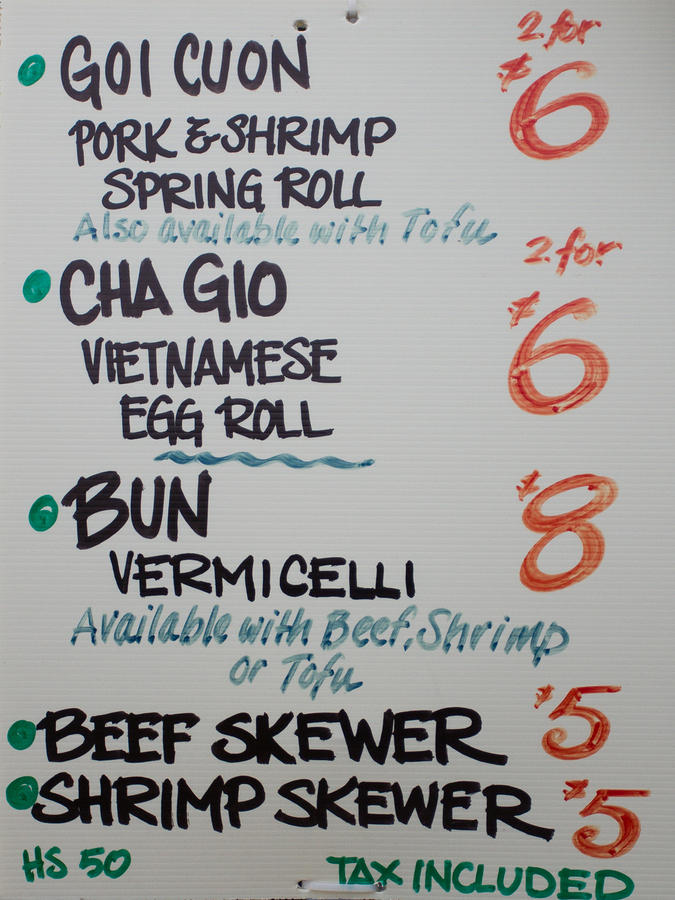 2 for
GOI CUON $6
PORK & SHRIMP
SPRING ROLL
Also available with Tofu
2 for
CHA GIO $6
VIETNAMESE
EGG ROLL
BUN $8
VERMICELLI
Available with Beef, Shrimp
or Tofu
BEEF SKEWER $5
SHRIMP SKEWER $5
HS 50 TAX INCLUDED